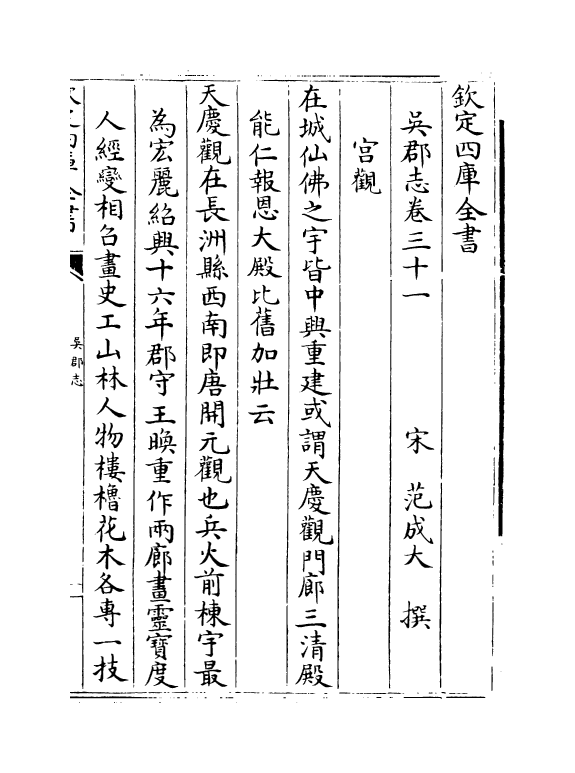 欽定四庫全書
吳郡志卷三十一　　　宋　范成大　撰
宫觀
在城仙佛之宇皆中興重建或謂天慶觀門廊三清殿
能仁報恩大殿比舊加壯云
天慶觀在長洲縣西南即唐開元觀也兵火前棟宇最
為宏麗紹興十六年郡守王㬇重作兩廊畫靈寳度
人經變相召畫史工山林人物樓櫓花木各専一技
欽定四庫全書
吳郡志
一